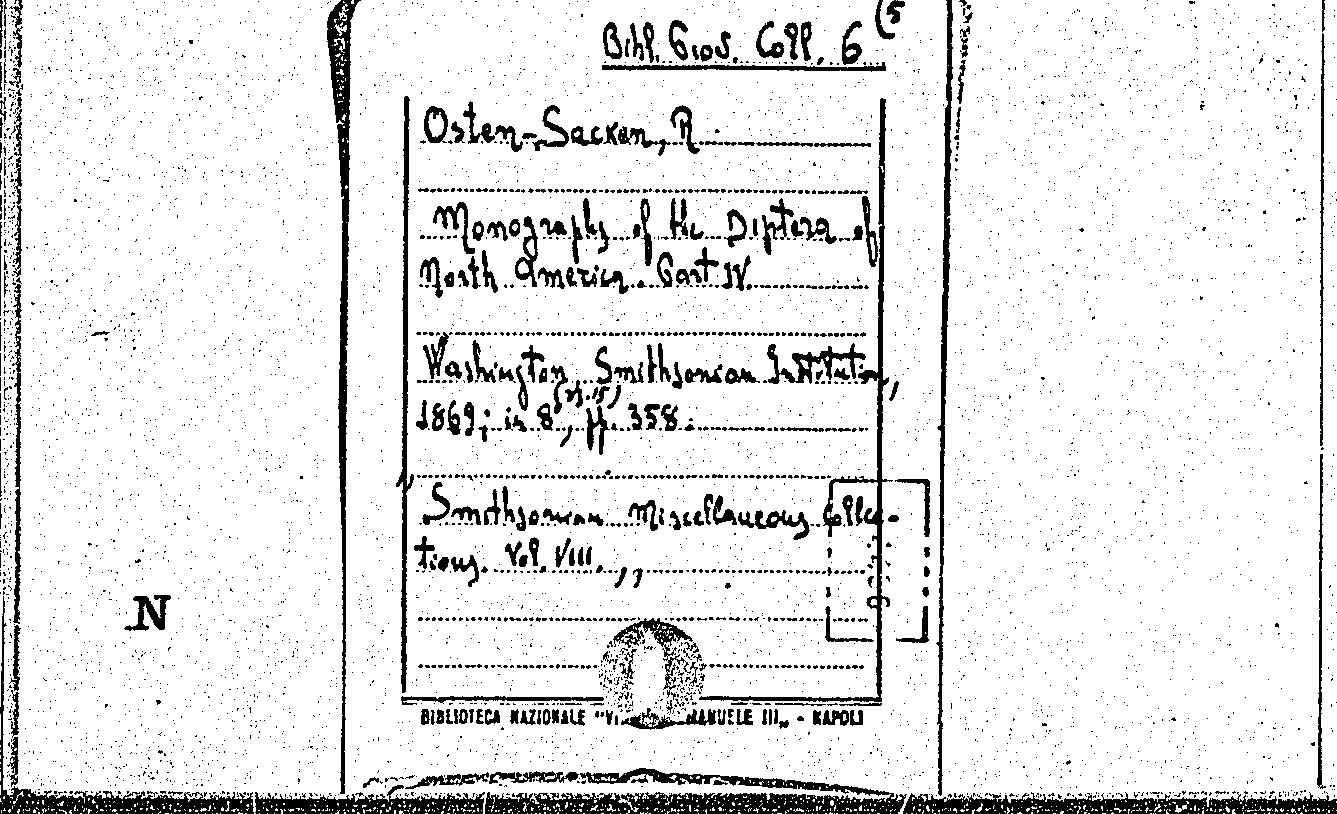 Bibl. Gios. Coll. 6 (5
Osten-Sacken, R.
Monographs of the Diptera of
North America. Part IV.
Washington, Smithsonian Institution,
1869; in 8, (23.15) pp. 358.
„Smithsonian Miscellaneous Collec-
tions. Vol. VIII. „
N
BIBLIOTECA NAZIONALE "VI MANUELE III„ - NAPOLI